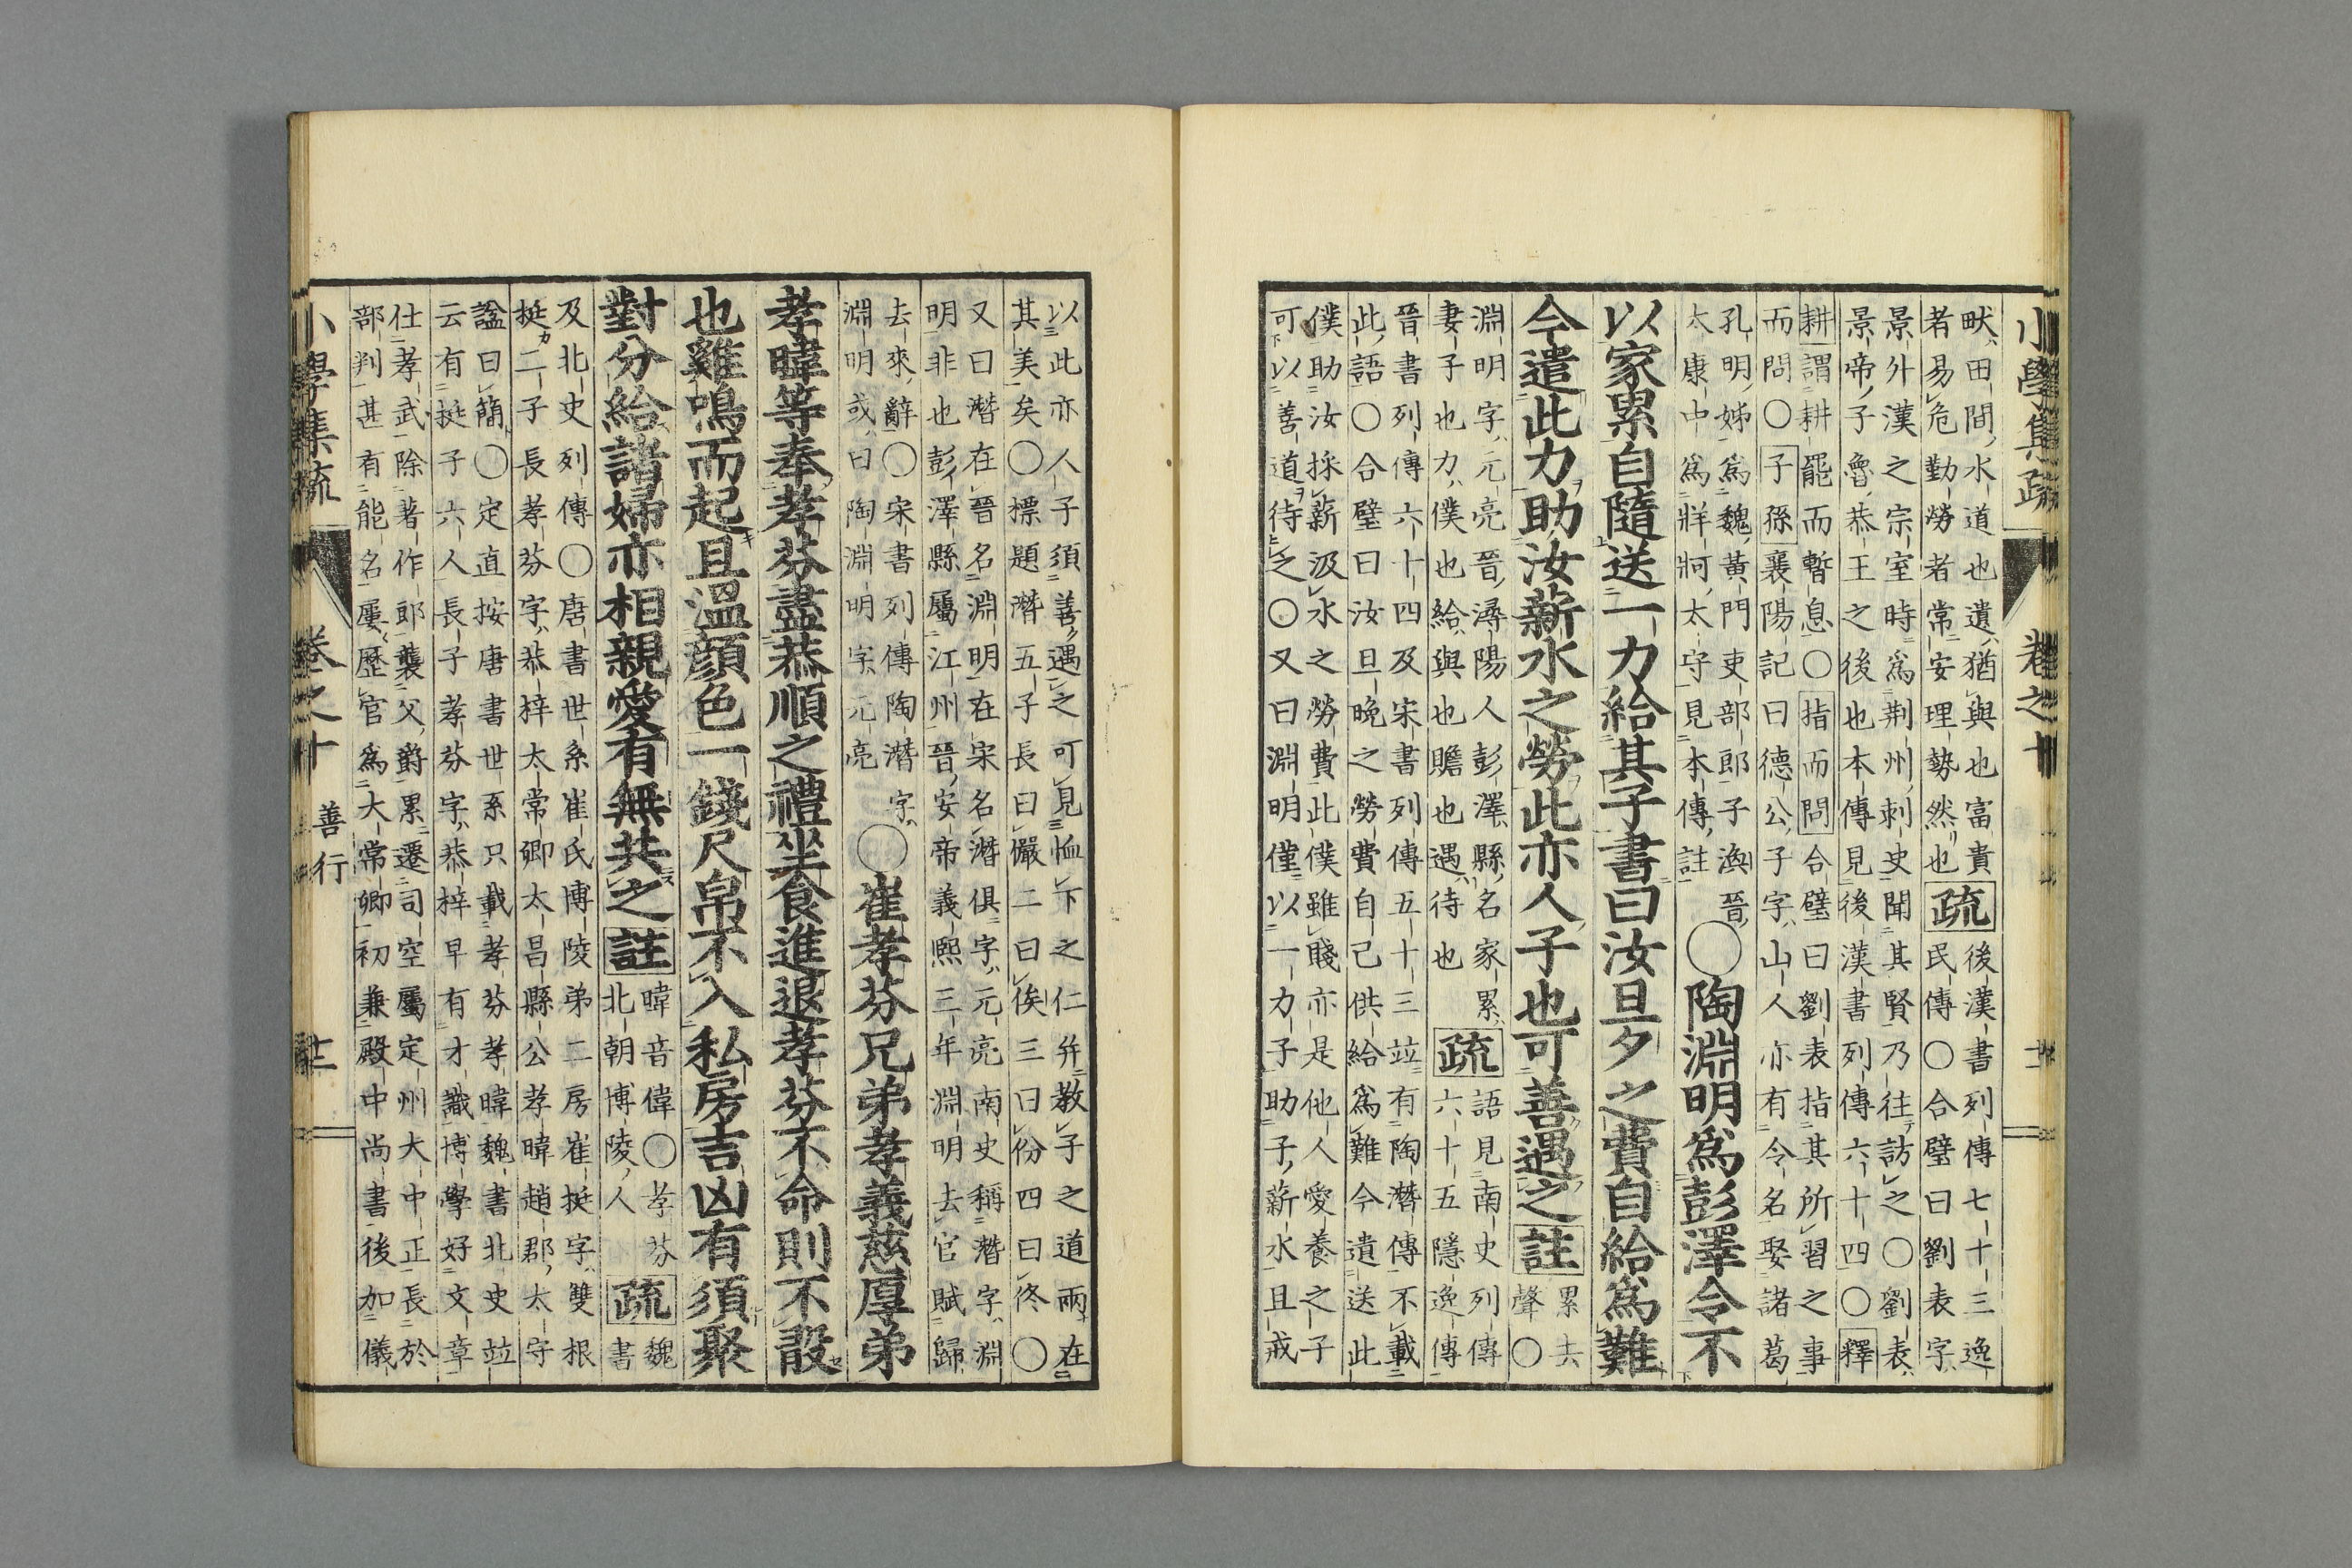 小學集疏
卷之十
畎田間水道也遺猶與也富貴
者易危勤勞者常安理勢然也
疏
後漢書列傳七十三逸
民傳○合璧曰劉表字
景外漢之宗室時爲荆州刺史聞其賢乃往訪之○劉表
景帝子魯恭王之後也本傳見後漢書列傳六十四○釋
耕謂耕罷而暫息○指而問合璧曰劉表指其所習之事
而問○子孫襄陽記曰德公子字山人亦有令名娶諸葛
孔明姊爲魏黃門吏部郎子渙晉
太康中爲牂牁太守見本傳註
○陶淵明爲彭澤令不
以家累自隨送一力給其子書曰汝旦夕之費自給爲難
今遣此力助汝薪水之勞此亦人子也可善遇之註
累去
聲○
淵明字元亮晉潯陽人彭澤縣名家累
妻子也力僕也給與也贍也遇待也
疏
語見南史列傳
六十五隱逸傳
晉書列傳六十四及宋書列傳五十三竝有陶潛傳不載
此語○合璧曰汝旦晚之勞費自己供給爲難今遣送此
僕助汝採薪汲水之勞費此僕雖賤亦是他人愛養之子
可以善道待之○又曰淵明僅以一力子助子薪水且戒
以此亦人子須善遇之可見恤下之仁幷教子之道兩在
其美矣○標題潛五子長曰儼二曰俟三曰份四曰佟○
又曰潛在晉名淵明在宋名潛俱字元亮南史稱潛字淵
明非也彭澤縣屬江州晉安帝義熙三年淵明去官賦歸
去來辭○宋書列傳陶潛字
淵明或曰陶淵明字元亮
○崔孝芬兄弟孝義慈厚弟
孝暐等奉孝芬盡恭順之禮坐食進退孝芬不命則不敢
也雞鳴而起且溫顔色一錢尺帛不入私房吉凶有須聚
對分給諸婦亦相親愛有無共之註
暐音偉○孝芬
北朝博陵人
疏
魏書
及北史列傳○唐書世系崔氏博陵弟二房崔挺字雙根
挺二子長孝芬字恭梓太常卿太昌縣公孝暐趙郡太守
諡曰簡○定直按唐書世系只載孝芬孝暐魏書北史竝
云有挺子六人長子孝芬字恭梓早有才識博學好文章
仕孝武除著作郎襲父爵累遷司空屬定州大中正長於
部判甚有能名屢歷官爲大常卿初兼殿中尚書後加儀
小學集疏
卷之十
善行
十二